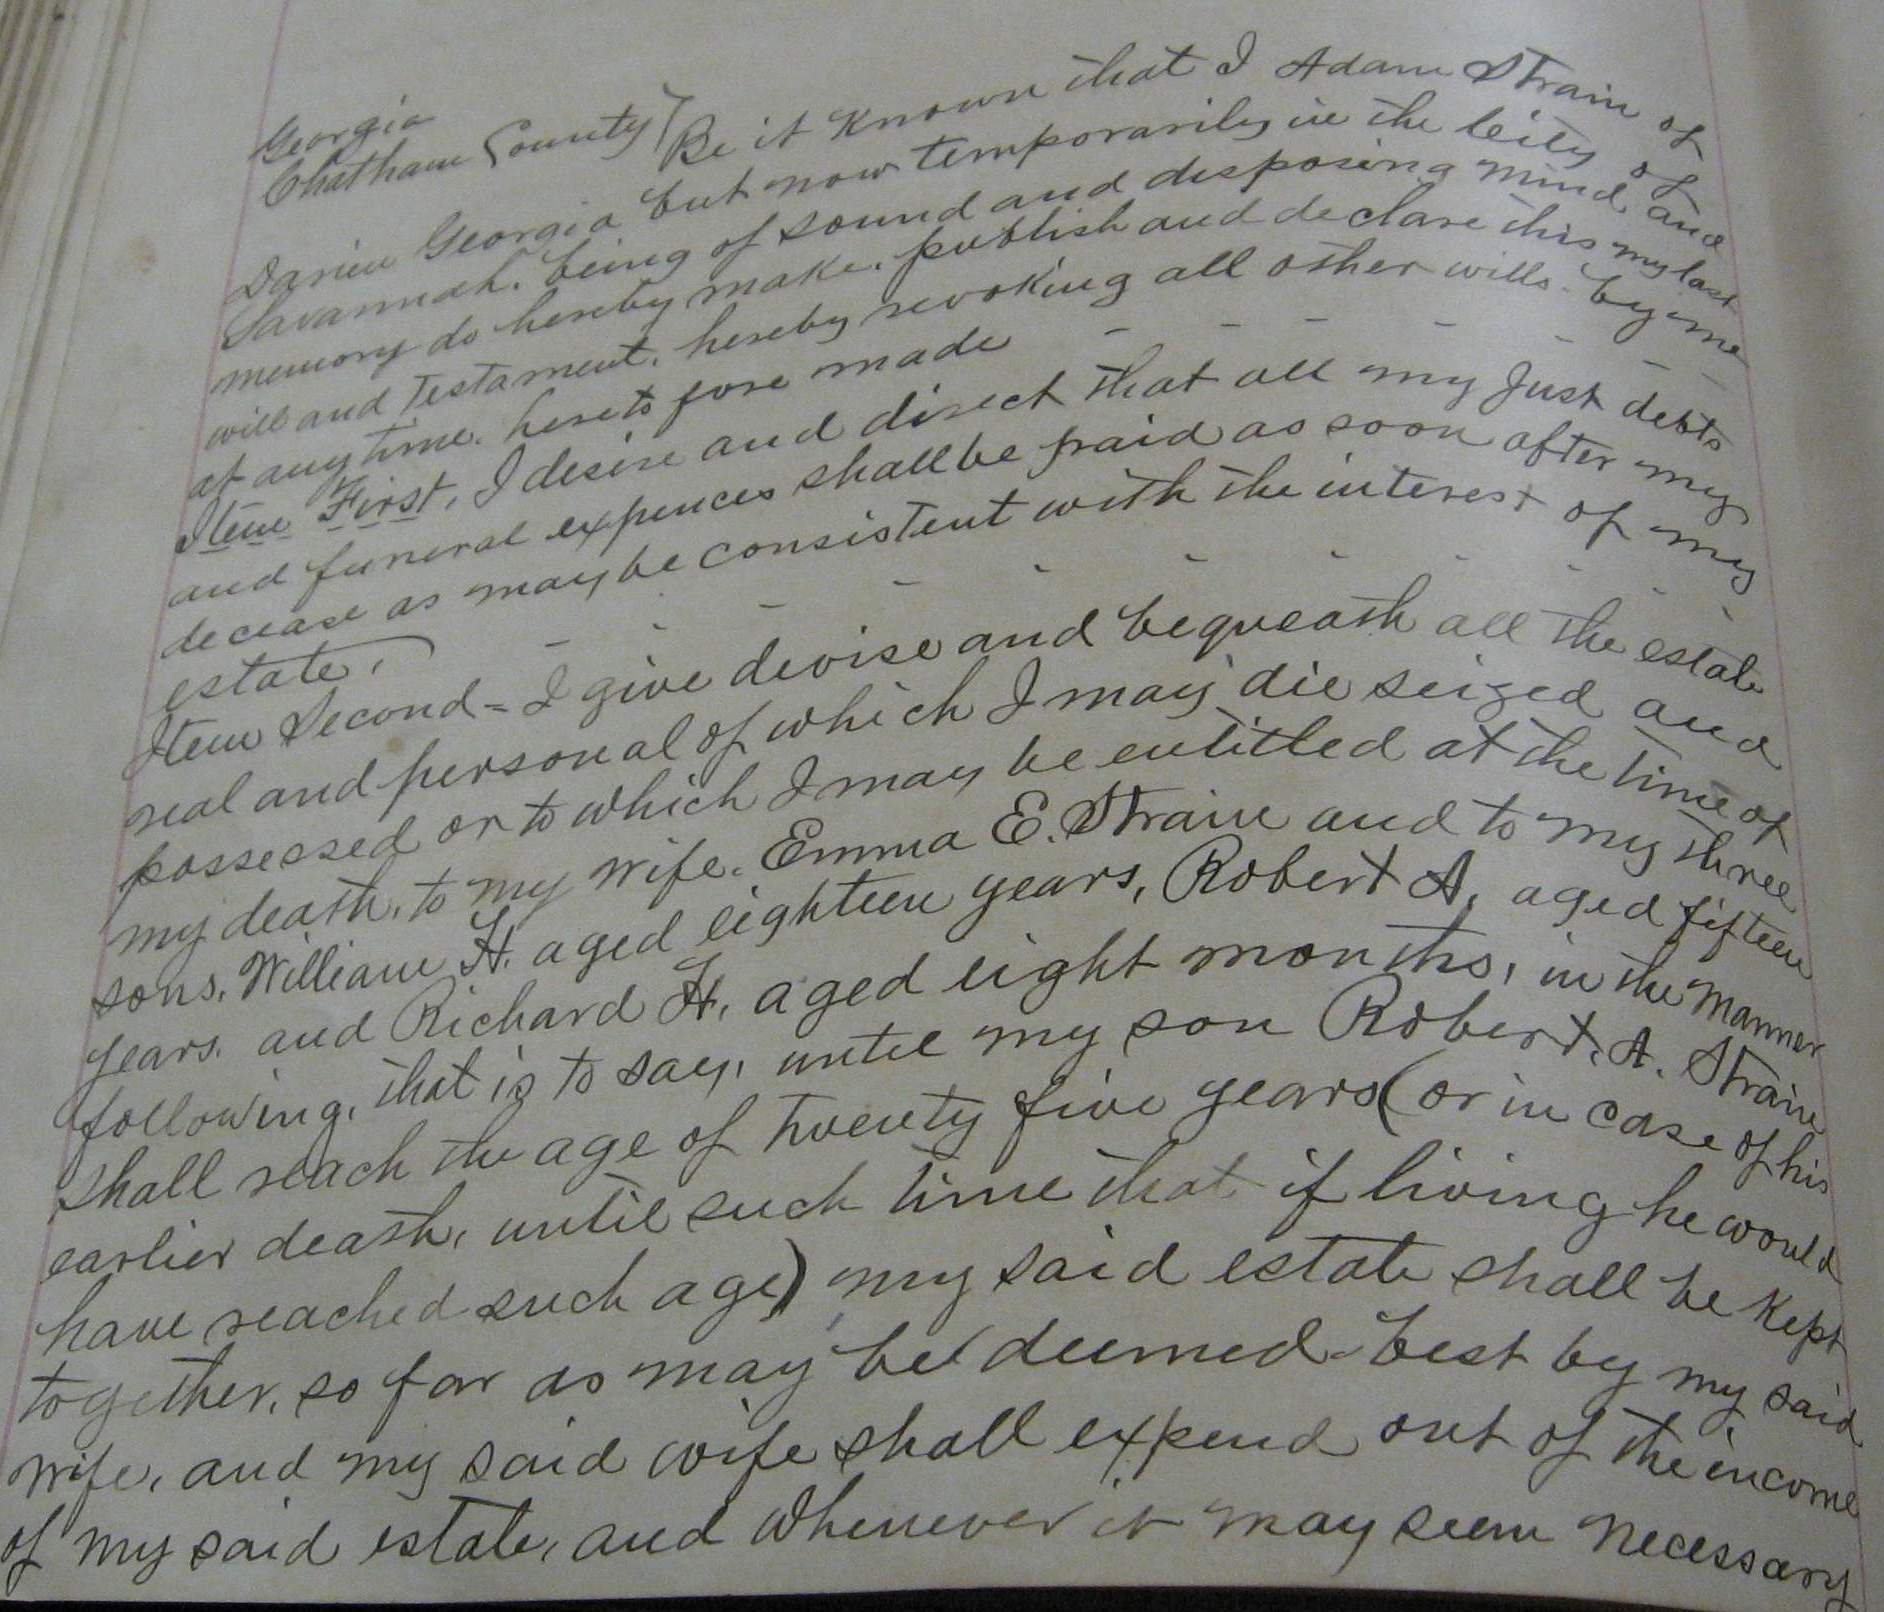 Georgia
Chatham County } Be it Known that I Adam Strain of
Darien Georgia but now temporarily in the City of
Savannah. being of sound and disposing mind and
memory do hereby make. publish and declare this my last
will and testament. hereby revoking all other wills by me
at any time. hereto fore made
Item First, I desire and direct that all my just debts
and funeral expences shall be paid as soon after my
decease as may be consistent with the interest of my
estate.
Item Second = I give devise and bequeath all the estate
real and personal of which I may die seized and
possessed or to which I may be entitled at the time of
my death. to my wife. Emma E. Strain and to my three
sons. William H. aged eighteen years, Robert A. aged fifteen
years. and Richard H. aged eight months, in the manner
following, that is to say, until my son Robert. A. Strain
shall reach the age of twenty five years (or in case of his
earlier death, until such time that if living he would
have reached such age) my said estate shall be kept
together, so far as may be deemed best by my said
wife, and my said wife shall expend out of the income
of my said estate, and whenever it may seem necessary